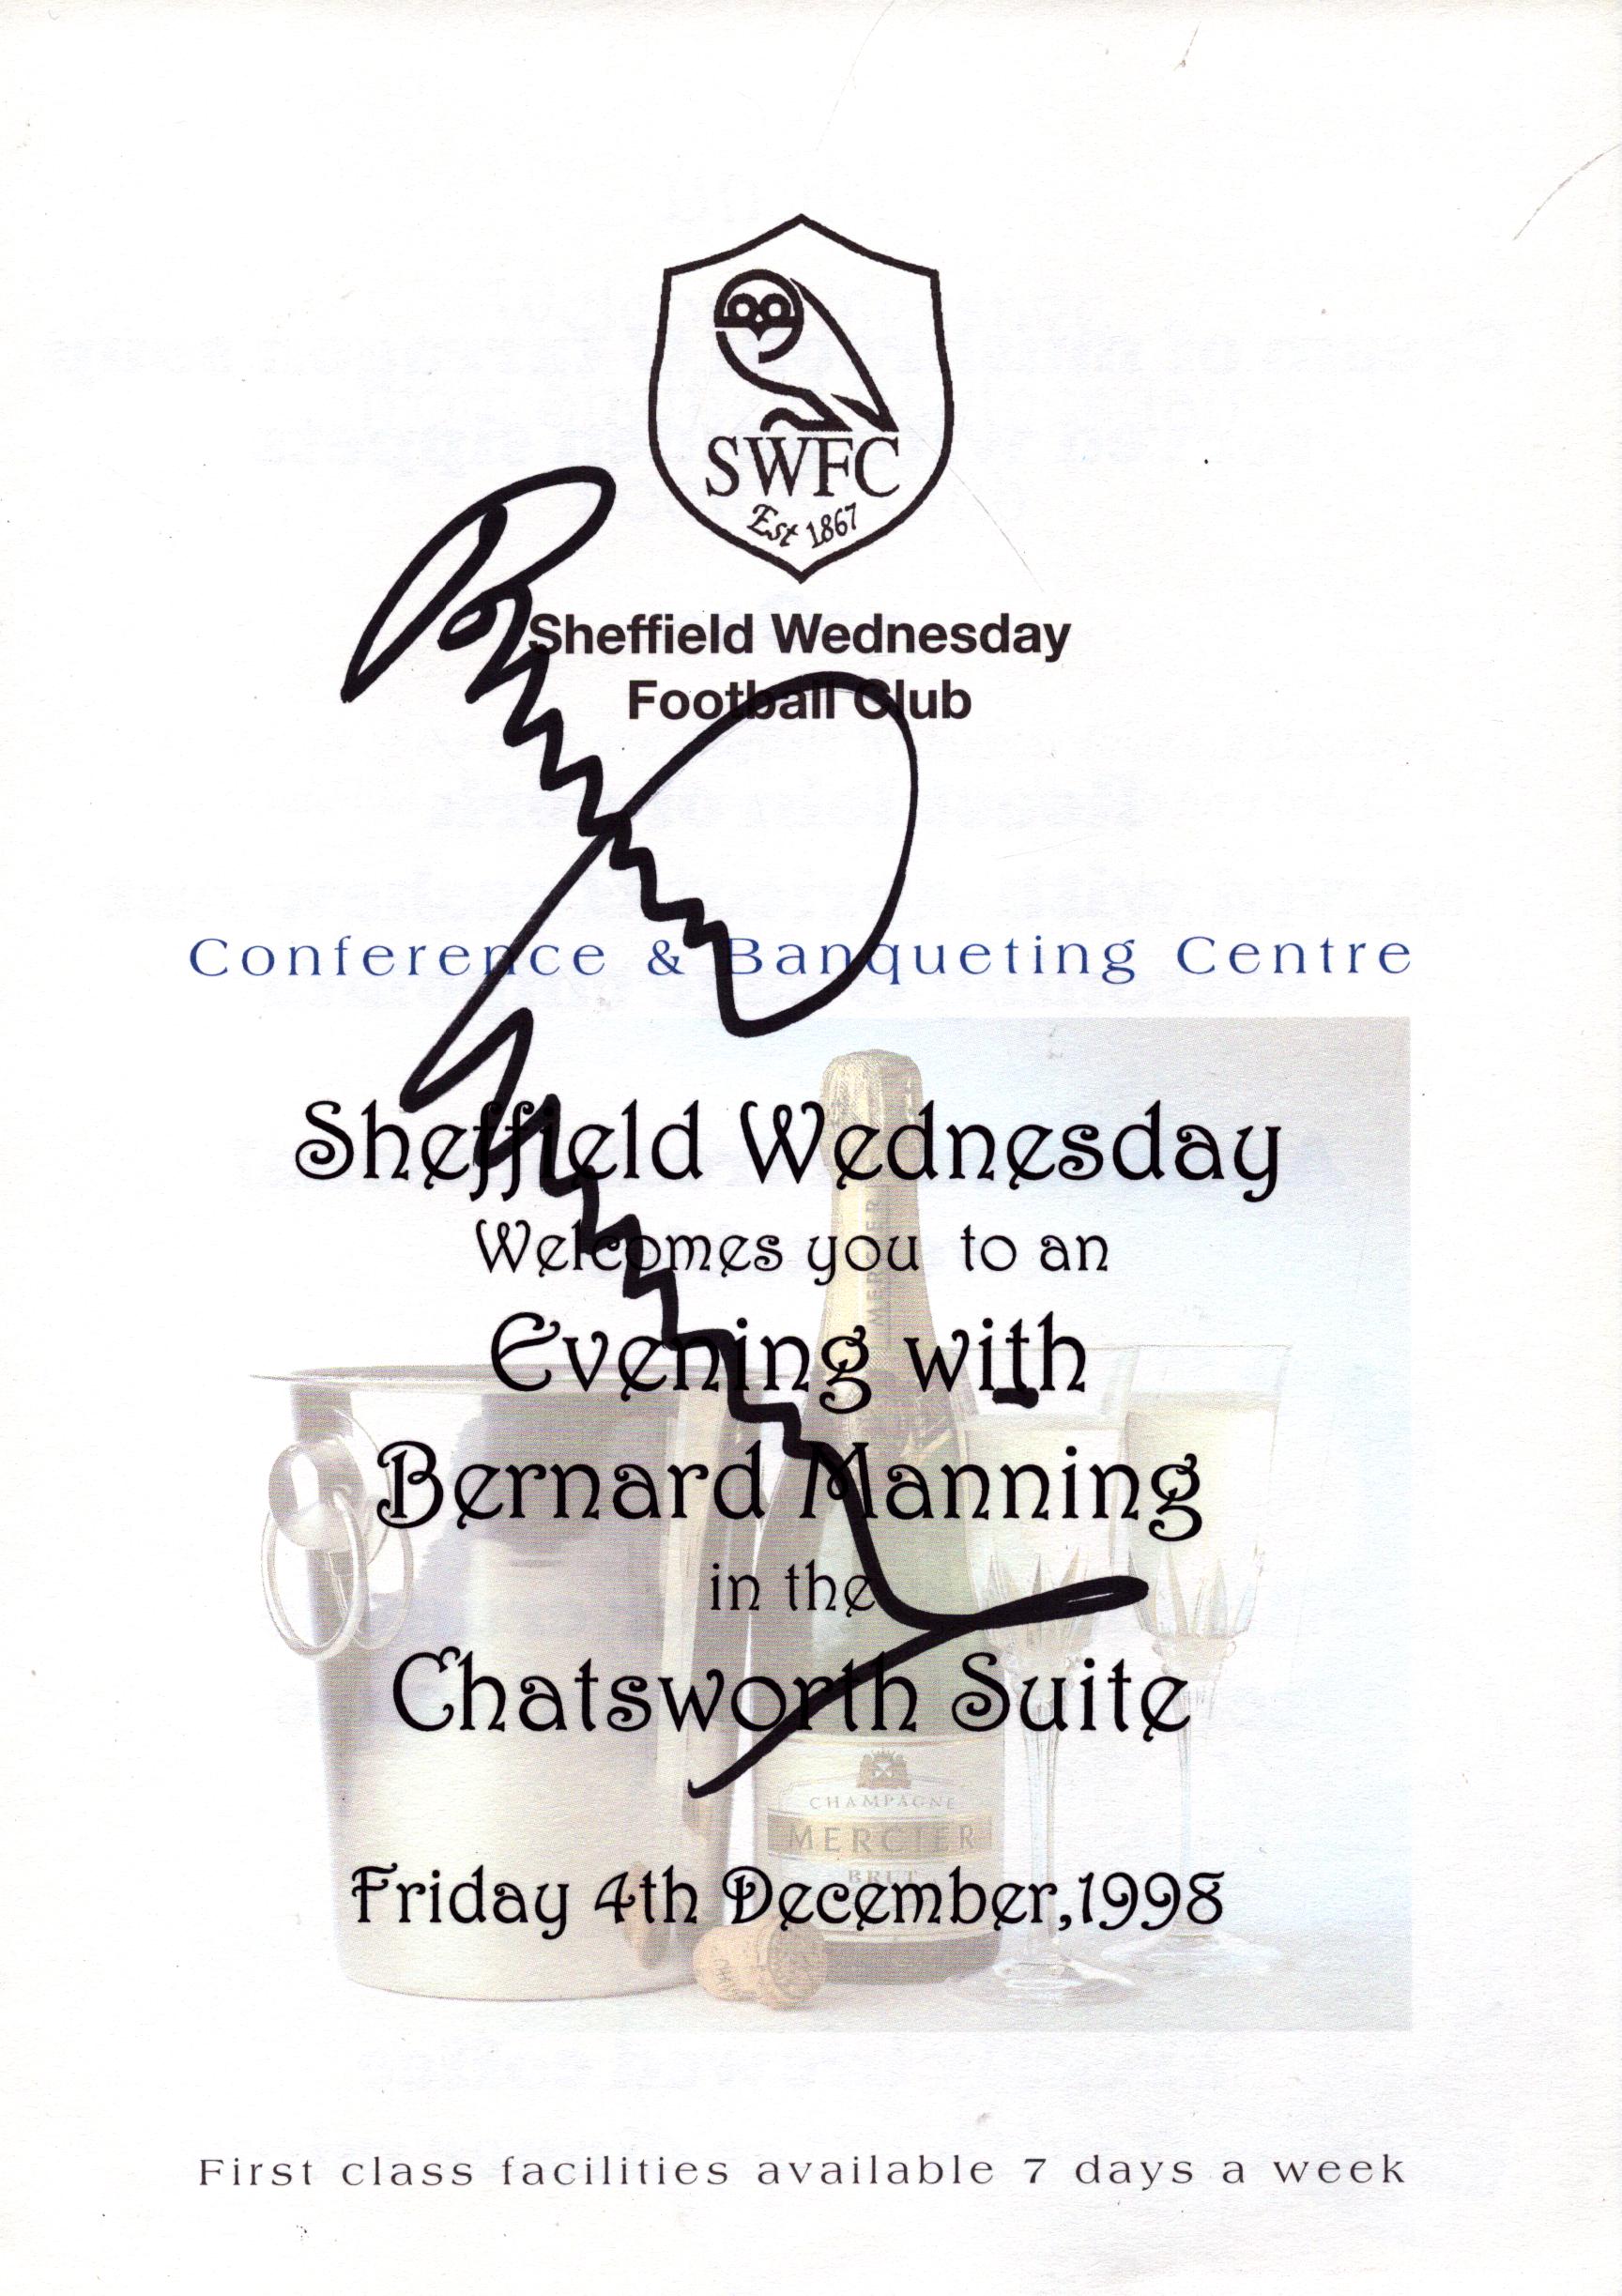 SWFC
Est 1867
Sheffield Wednesday
Football Club
Conference & Banqueting Centre
Sheffield Wednesday
Welcomes you to an
Evening with
Bernard Manning
in the
Chatsworth Suite
Friday 4th December,1998
MERCIER
CHAMPAGNE
MERCIER
BRUT
First class facilities available 7 days a week